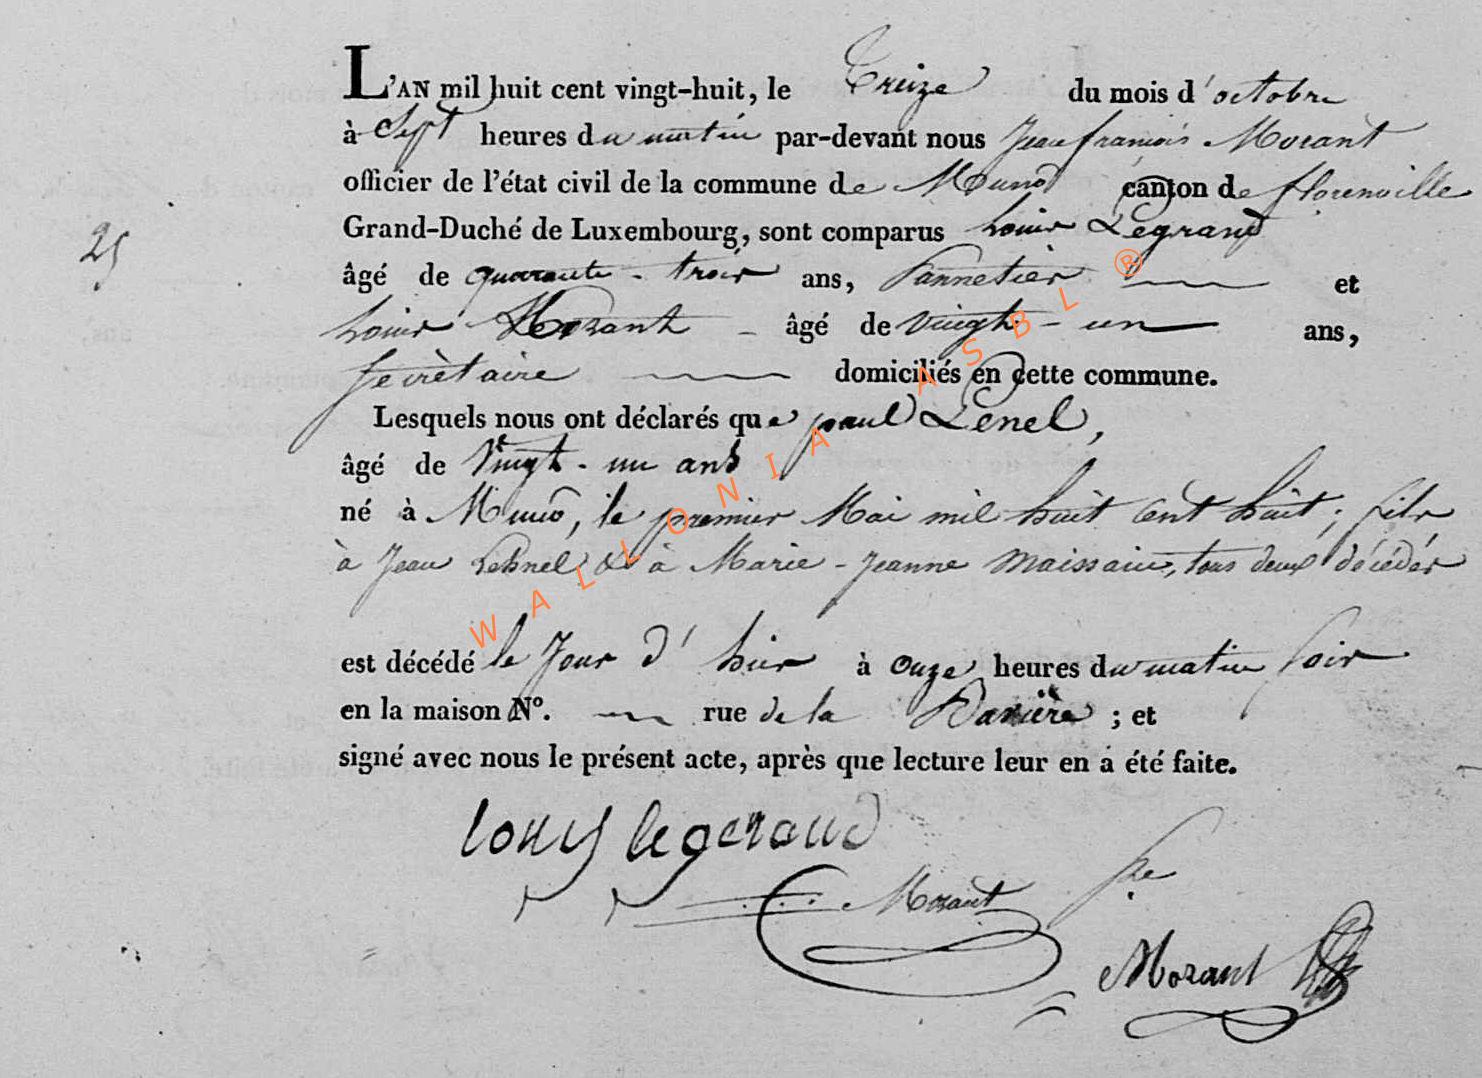 L'AN mil huit cent vingt-huit, le Treize du mois d'octobre
à Sept heures du matin par-devant nous Jean françois Morant
officier de l'état civil de la commune de Muno canton de florenville
Grand-Duché de Luxembourg, sont comparus Louis Legrand
25
âgé de quarante-trois ans, Pannetier et
Louis Morant âgé de vingt-un ans,
secrètaire domiciliés en cette commune.
Lesquels nous ont déclarés que paul Lenel,
âgé de Vingt-un ans
né à Muno, le premier Mai mil huit cent huit; fils
à Jean Lesnel & à Marie-Jeanne Maissain, tous deux décédés
est décédé le Jour d'hier à onze heures du matin soir
en la maison N°. rue de la ; et
signé avec nous le présent acte, après que lecture leur en a été faite.
louys legerand
Morant
Morant
WALLONIA ASBL ®